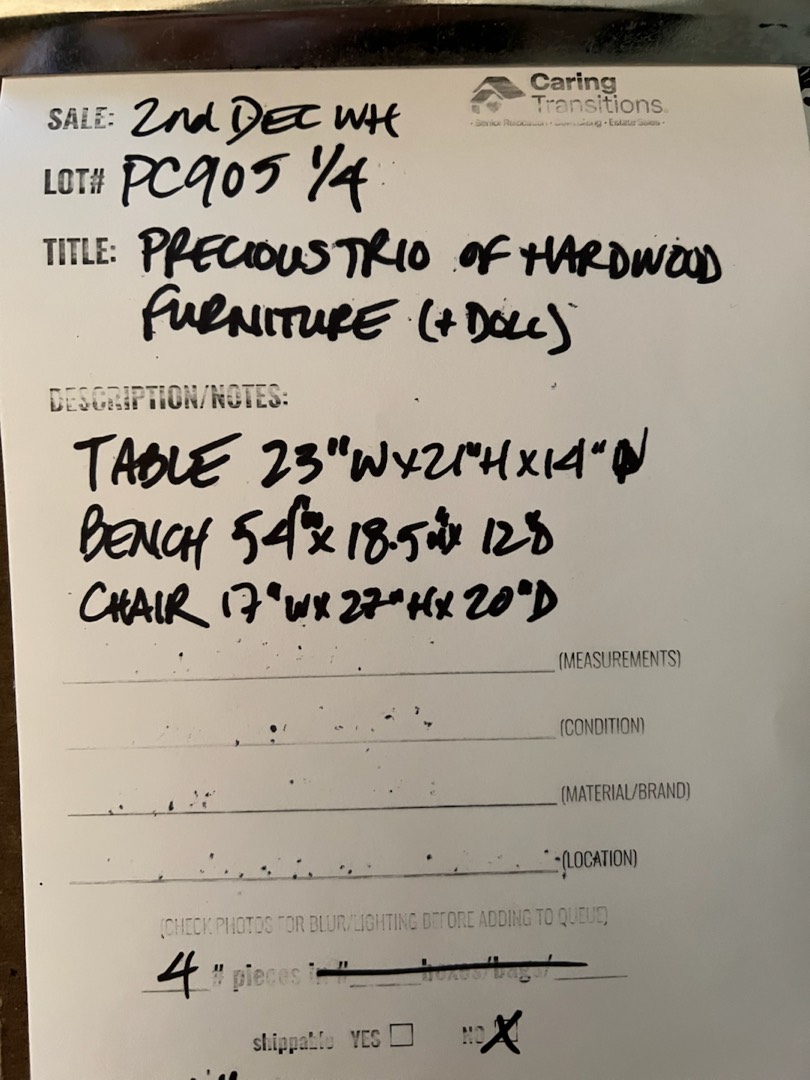 Caring
Transitions
SALE: 2nd DEC WH
LOT# PC905 1/4
TITLE: PRECIOUS TRIO OF HARDWOOD
FURNITURE (+ DOLL)
DESCRIPTION/NOTES:
TABLE 23"W x 21"H x 14"D
BENCH 54" x 18.5" x 12
CHAIR 17"W x 27"H x 20"D
(MEASUREMENTS)
(CONDITION)
(MATERIAL/BRAND)
(LOCATION)
(CHECK PHOTOS FOR BLUR/LIGHTING BEFORE ADDING TO QUEUE)
4 # pieces in # boxes/bags/
shippable YES NO X